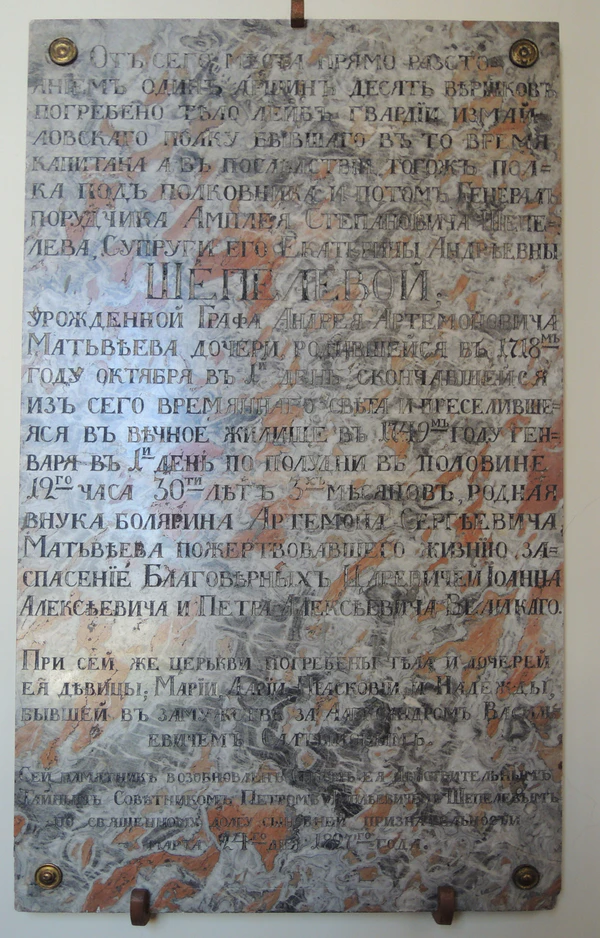 Отъ сего места прямо разсто-
яніемъ одинъ аршинъ десять вѣршковъ
погребено тѣло лейбъ гвардіи измай-
ловскаго полку бывшаго въ то время
капитана а въ последствіи тогожъ пол=
ка подъ полковника и потомъ Генералъ
порудчика Амплея Степановича Шепе=
лева, Супруги его Екатерины Андреевны
ШЕПЕЛЕВОЙ.
урожденной Графа Андрея Артемоновича
Матьвѣева дочери родившейся въ 1718мъ
году октября въ 1й день скончавшейся
изъ сего времяннаго света и преселивше=
яся въ вѣчное жилище въ 1749мъ году ген-
варя въ 1и день по полудни въ половине
12го часа 30ти лѣтъ 3хъ мѣсяцовъ, родная
внука болярина Артемона Сергѣевича
Матьвѣева пожертвовавшего жизнію за-
спасеніе Благовѣрныхъ Царевичей Іоанна
Алексѣевича и Петра Алексѣевича Великаго.
При сей же церькви погребены тѣла и дочерей
ея дѣвицы, Маріи Даріи Парасковіи, и Надежды,
бывшей въ замужсвѣ за Александромъ Василь
евичемъ
Сей памятникъ возобновленъ ея действительнымъ
Советникомъ Петромъ Шепелевымъ
по священному долгу сыновней признательности
марта 24го дня 1827го года